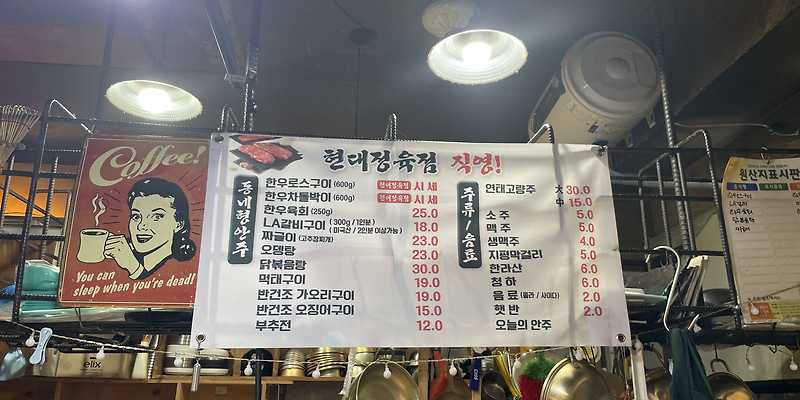 Coffee!
You can
sleep when you're dead!
현대정육점 직영!
동네형안주
한우로스구이 (600g) 현대정육점 시세
한우차돌박이 (600g) 현대정육점 시세
한우육회 (250g) 25.0
LA갈비구이 (300g / 1인분) (미국산 / 2인분 이상가능) 18.0
짜글이 (고추장찌개) 23.0
오뎅탕 23.0
닭볶음탕 30.0
먹태구이 19.0
반건조 가오리구이 19.0
반건조 오징어구이 15.0
부추전 12.0
주류 / 음료
연태고량주 大 30.0
中 15.0
소주 5.0
맥주 5.0
생맥주 4.0
지평막걸리 5.0
한라산 6.0
청하 6.0
음료 (콜라 / 사이다) 2.0
햇반 2.0
오늘의 안주
원산지표시판
elix